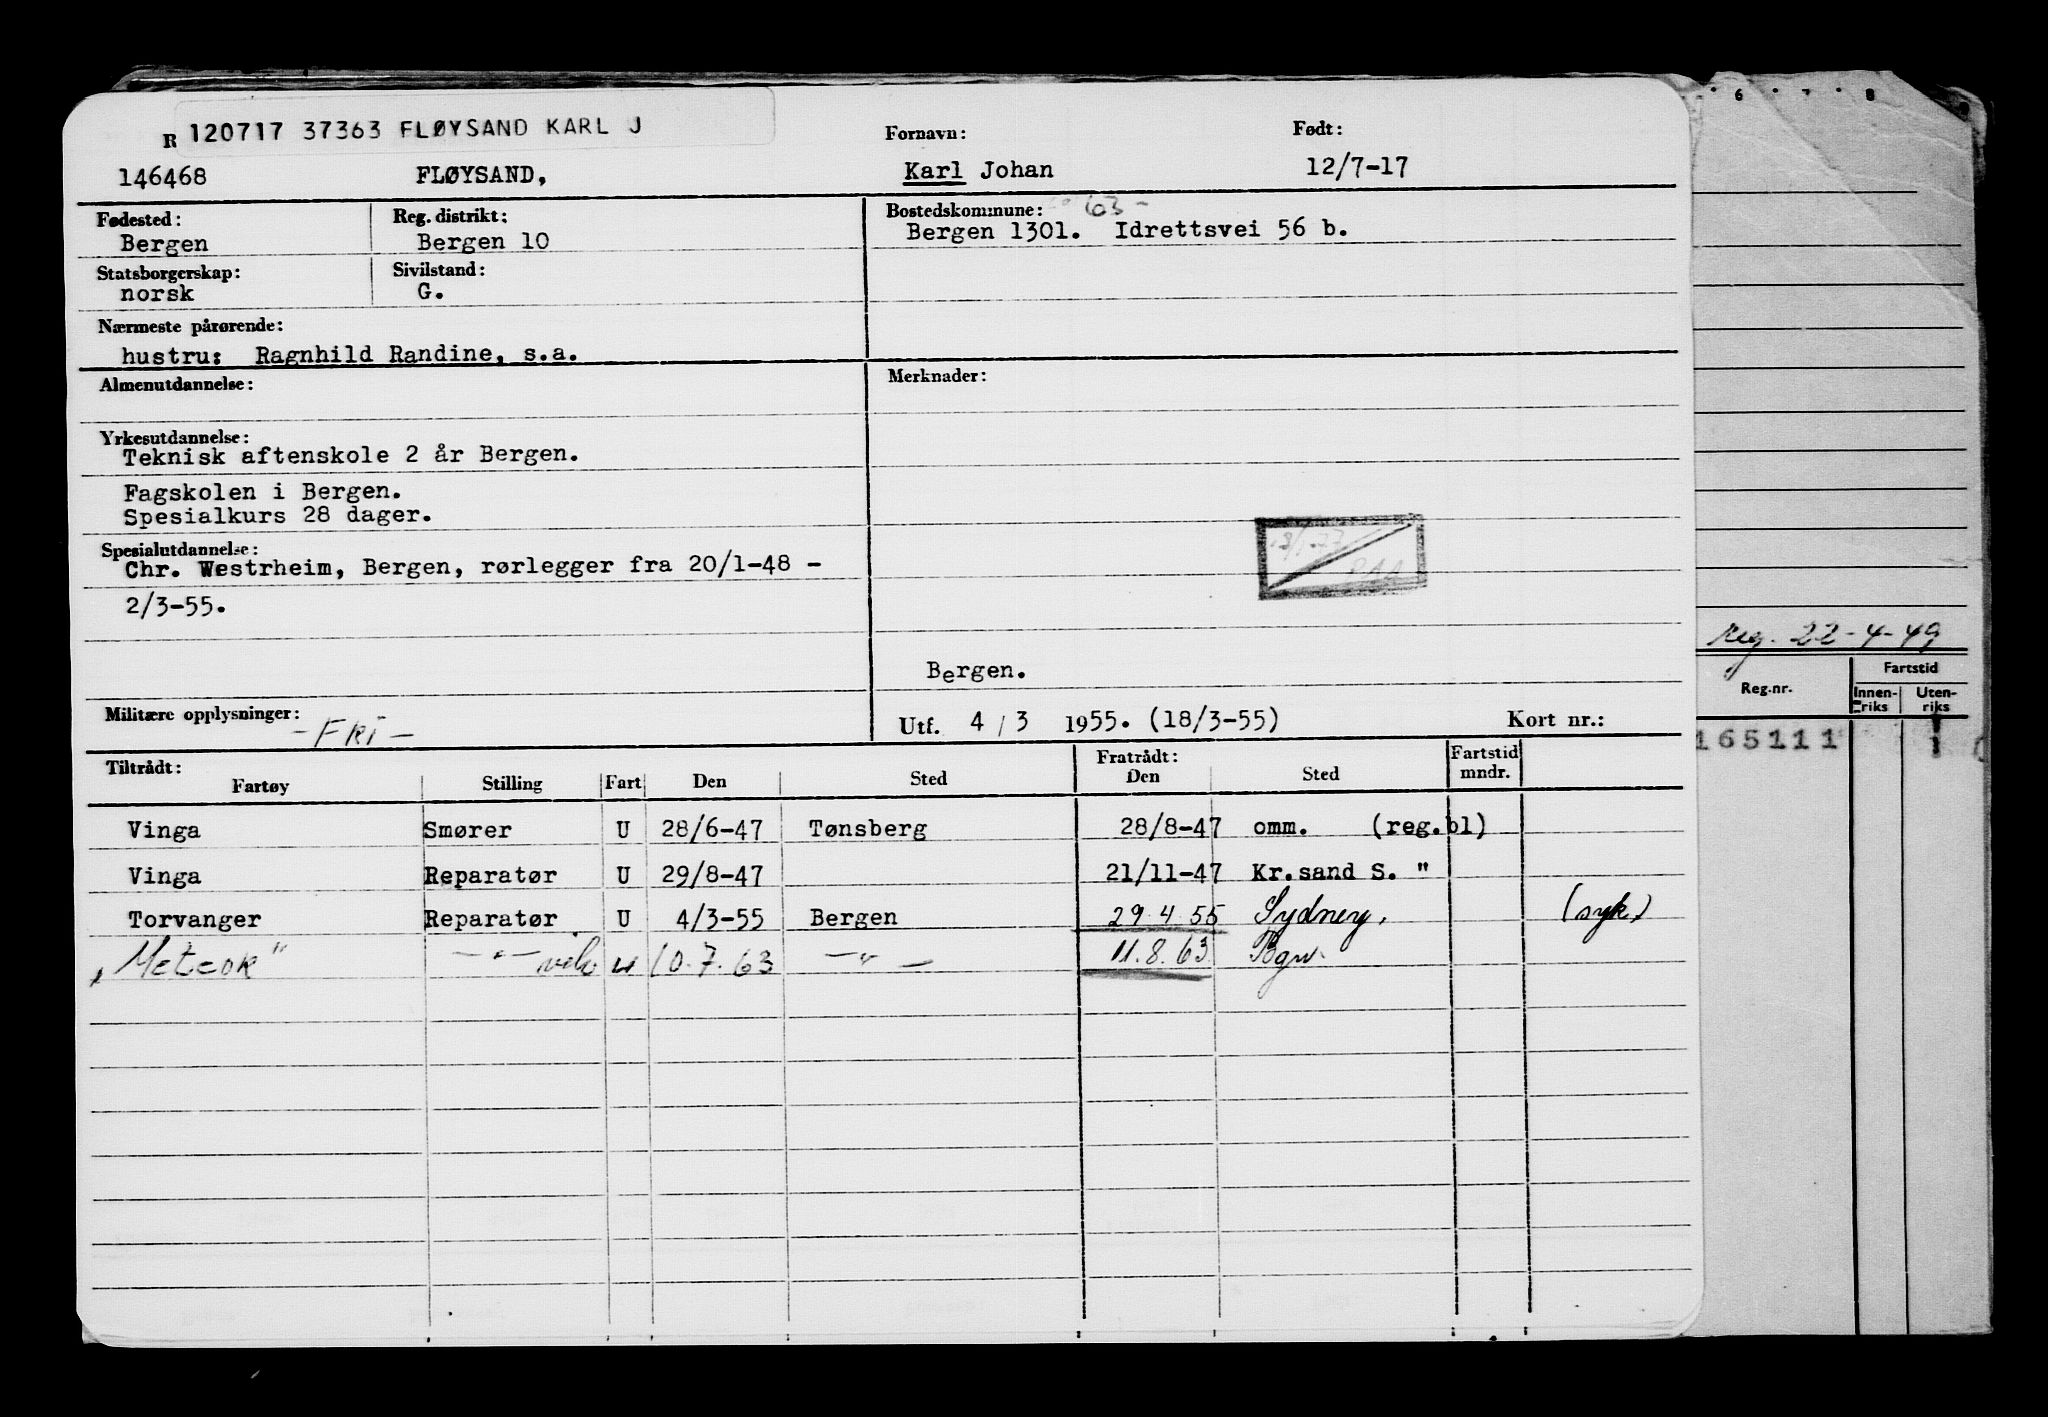 R 120717 37363 FLØYSAND KARL J
Fornavn: Født:
146468 FLØYSAND, Karl Johan 12/7-17
Fødested: Reg. distrikt: Bostedskommune: 63-
Bergen Bergen 10 Bergen 1301. Idrettsvei 56 b.
Statsborgerskap: Sivilstand:
norsk G.
Nærmeste pårørende:
hustru: Ragnhild Randine, s.a.
Almenutdannelse: Merknader:
Yrkesutdannelse:
Teknisk aftenskole 2 år Bergen.
Fagskolen i Bergen.
Spesialkurs 28 dager.
Spesialutdannelse:
Chr. Westrheim, Bergen, rørlegger fra 20/1-48 -
2/3-55.
Bergen.
Militære opplysninger: -Fri-
Utf. 4/3 1955. (18/3-55) Kort nr.:
Tiltrådt: Fratrådt: Fartstid
Fartøy Stilling Fart Den Sted Den Sted mndr.
Vinga Smører U 28/6-47 Tønsberg 28/8-47 omm. (reg.bl)
Vinga Reparatør U 29/8-47 21/11-47 Kr.sand S. "
Torvanger Reparatør U 4/3-55 Bergen 29.4.55 Sydney. (syk)
"Meteor" -"- u 10.7.63 -"- 11.8.63 Bgn.
6 7 8 9
reg. 22-4-49
Reg.nr. Fartstid
Innen-riks Uten-riks
165111